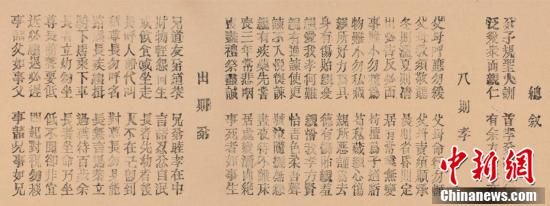 總敘
弟子規聖人訓 首孝弟
汎愛眾而親仁 有餘力
入則孝
父母呼應勿緩 父母命
父母教須敬聽 父母責須順承
冬則溫夏則凊 晨則省昏則定
出必告反必面 居有常業無變
事雖小勿擅為 苟擅為子道虧
物雖小勿私藏 苟私藏親心傷
親所好力為具 親所惡謹為去
身有傷貽親憂 德有傷貽親羞
親愛我孝何難 親憎我孝方賢
親有過諫使更 怡吾色柔吾聲
諫不入悅復諫 號泣隨撻無怨
親有疾藥先嘗 晝夜侍不離床
喪三年常悲咽 居處變酒肉絕
喪盡禮祭盡誠 事死者如事生
出則弟
兄道友弟道恭 兄弟睦孝在中
財物輕怨何生 言語忍忿自泯
或飲食或坐走 長者先幼者後
長呼人即代叫 人不在己即到
稱尊長勿呼名 對尊長勿見能
路遇長疾趨揖 長無言退恭立
騎下馬乘下車 過猶待百步餘
長者立幼勿坐 長者坐命乃坐
尊長前聲要低 低不聞卻非宜
近必趨退必遲 問起對視勿移
事諸父如事父 事諸兄如事兄
中新网